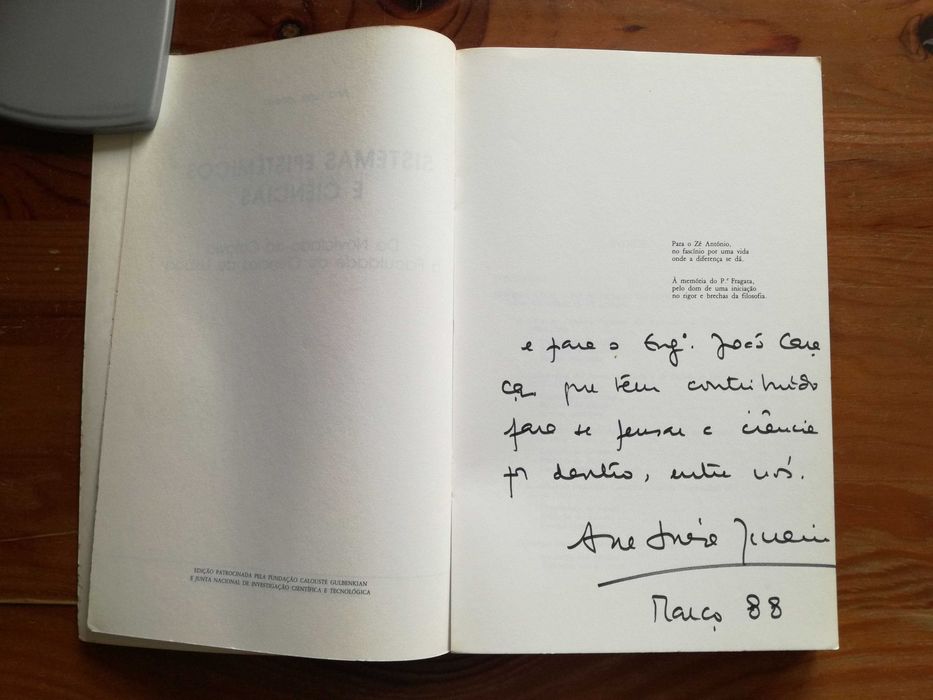 EDIÇÃO PATROCINADA PELA FUNDAÇÃO CALOUSTE GULBENKIAN
E JUNTA NACIONAL DE INVESTIGAÇÃO CIENTÍFICA E TECNOLÓGICA
Para o Zé António,
no fascínio por uma vida
onde a diferença se dá.
À memória do P.e Fragata,
pelo dom de uma iniciação
no rigor e brechas da filosofia.
e para o Engº. João Cara
ça que têm contribuido
para se pensar a ciência
por dentro, entre nós.
Ana
Março 88